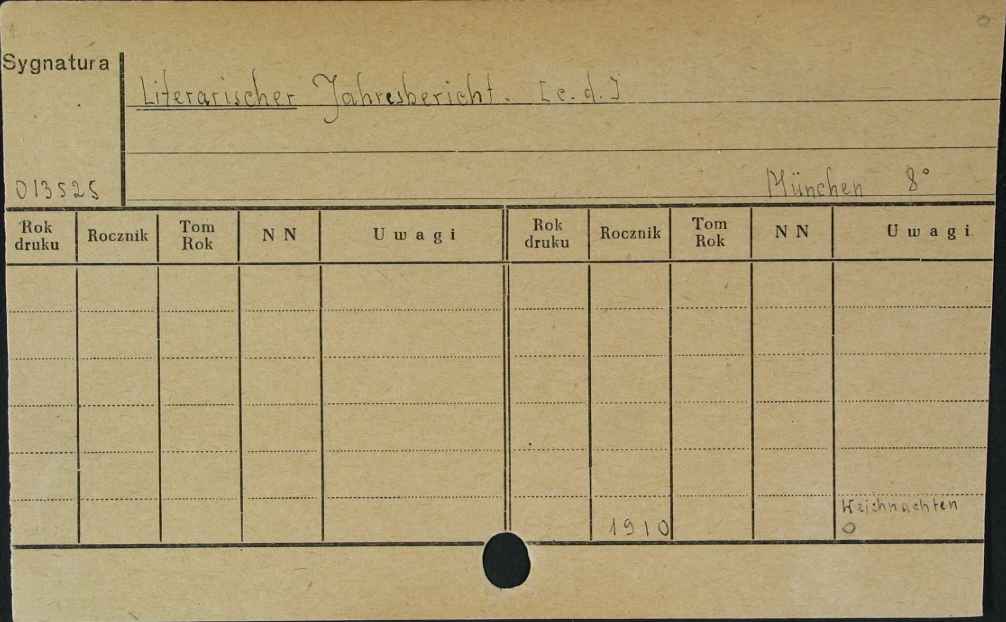 Sygnatura
Literarischer Jahresbericht. [c.d.]
013525
München 8°
Rok druku Rocznik Tom Rok N N Uwagi Rok druku Rocznik Tom Rok N N Uwagi
Weihnachten
1910 0